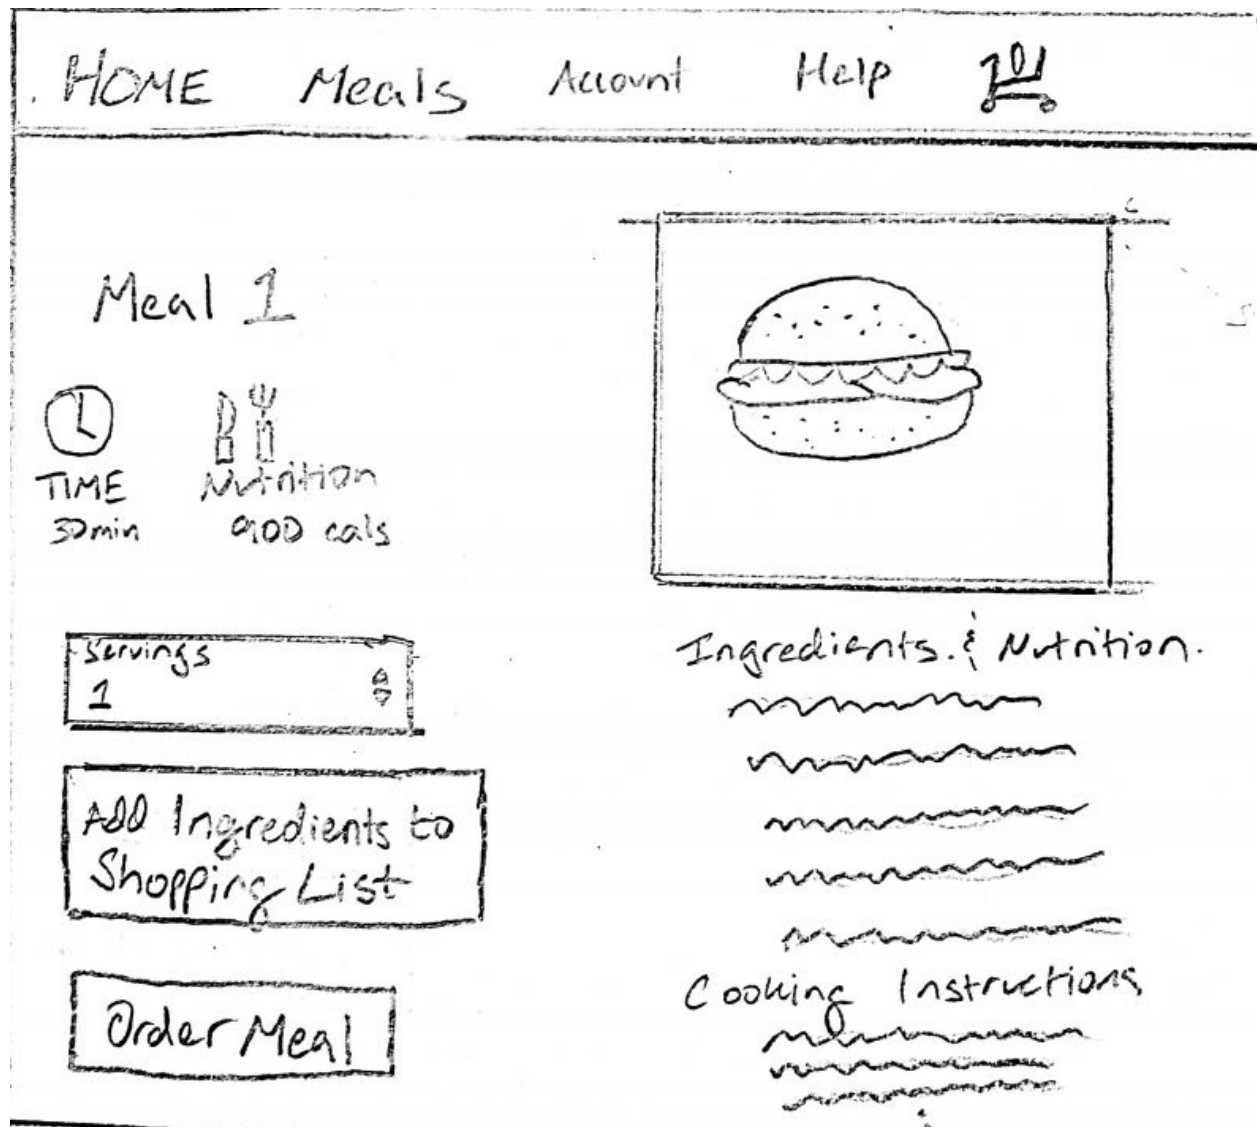 HOME Meals Account Help 0
Meal 1
TIME
30min
Nutrition
900 cals
Servings
1
Add Ingredients to
Shopping List
Order Meal
Ingredients & Nutrition
Cooking Instructions